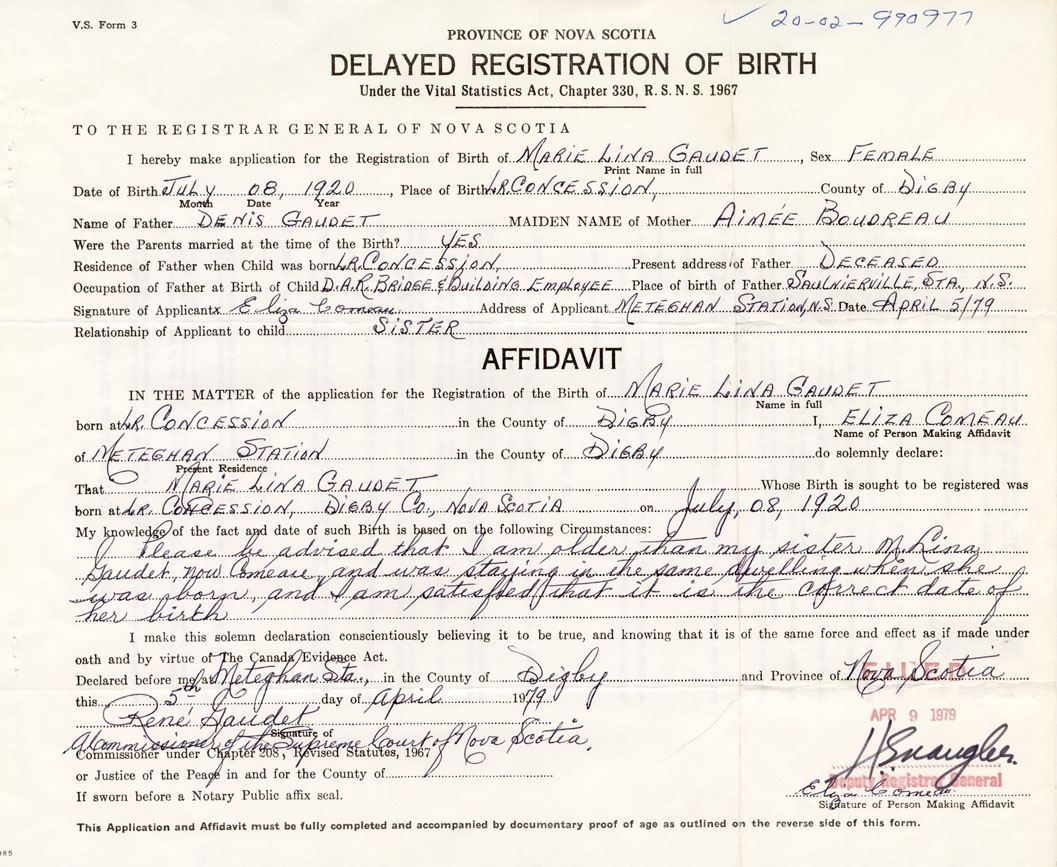 V.S. Form 3
✓ 20-02-990977
PROVINCE OF NOVA SCOTIA
DELAYED REGISTRATION OF BIRTH
Under the Vital Statistics Act, Chapter 330, R. S. N. S. 1967
TO THE REGISTRAR GENERAL OF NOVA SCOTIA
I hereby make application for the Registration of Birth of MARIE LINA GAUDET, Sex FEMALE
Print Name in full
Date of Birth JULY 08, 1920, Place of Birth LR. CONCESSION, County of DIGBY
Month Date Year
Name of Father DENIS GAUDET MAIDEN NAME of Mother AIMÉE BOUDREAU
Were the Parents married at the time of the Birth? YES
Residence of Father when Child was born LR. CONCESSION, Present address of Father DECEASED
Occupation of Father at Birth of Child D.A.R. BRIDGE & BUILDING EMPLOYEE Place of birth of Father SAULNIERVILLE, STA., N.S.
Signature of Applicant x Eliza Comeau Address of Applicant METEGHAN STATION, N.S. Date APRIL 5/79
Relationship of Applicant to child SISTER
AFFIDAVIT
IN THE MATTER of the application for the Registration of the Birth of MARIE LINA GAUDET
Name in full
born at LR. CONCESSION in the County of DIGBY I, ELIZA COMEAU
Name of Person Making Affidavit
of METEGHAN STATION in the County of DIGBY do solemnly declare:
Present Residence
That MARIE LINA GAUDET Whose Birth is sought to be registered was
born at LR. CONCESSION, DIGBY CO., NOVA SCOTIA on July, 08, 1920
My knowledge of the fact and date of such Birth is based on the following Circumstances:
Please be advised that I am older than my sister M. Lina
Gaudet, now Comeau, and was staying in the same dwelling when she
was born, and I am satisfied that it is the correct date of
her birth
I make this solemn declaration conscientiously believing it to be true, and knowing that it is of the same force and effect as if made under
oath and by virtue of The Canada Evidence Act.
Declared before me at Meteghan Sta., in the County of Digby and Province of Nova Scotia
FILED
this 5th day of April 1979
René Gaudet
APR 9 1979
Signature of
A Commissioner of the Supreme Court of Nova Scotia.
Commissioner under Chapter 208, Revised Statutes, 1967
H Snaugler
or Justice of the Peace in and for the County of
Deputy Registrar General
If sworn before a Notary Public affix seal.
Eliza Comeau
Signature of Person Making Affidavit
This Application and Affidavit must be fully completed and accompanied by documentary proof of age as outlined on the reverse side of this form.